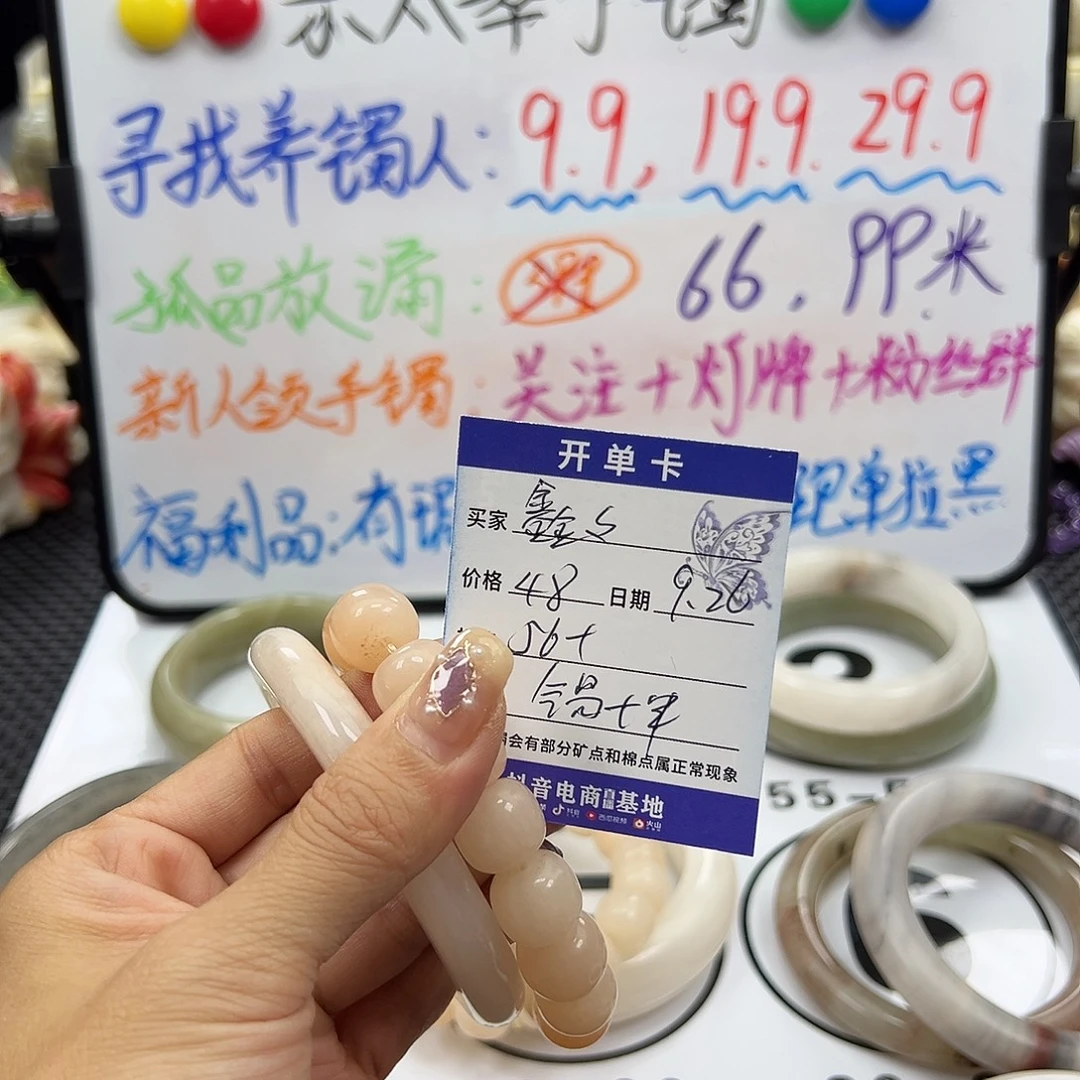 寻找养镯人: 9.9, 19.9. 29.9
孤品放漏: 66. 99米
新人领手镯: 关注+灯牌+粉丝群
福利品:有瑕 跑单拉黑
开单卡
买家 鑫
价格 48 日期 9.26
56+
镯+串
会有部分矿点和棉点属正常现象
抖音电商直播基地
抖音 西瓜视频 火山
55-5